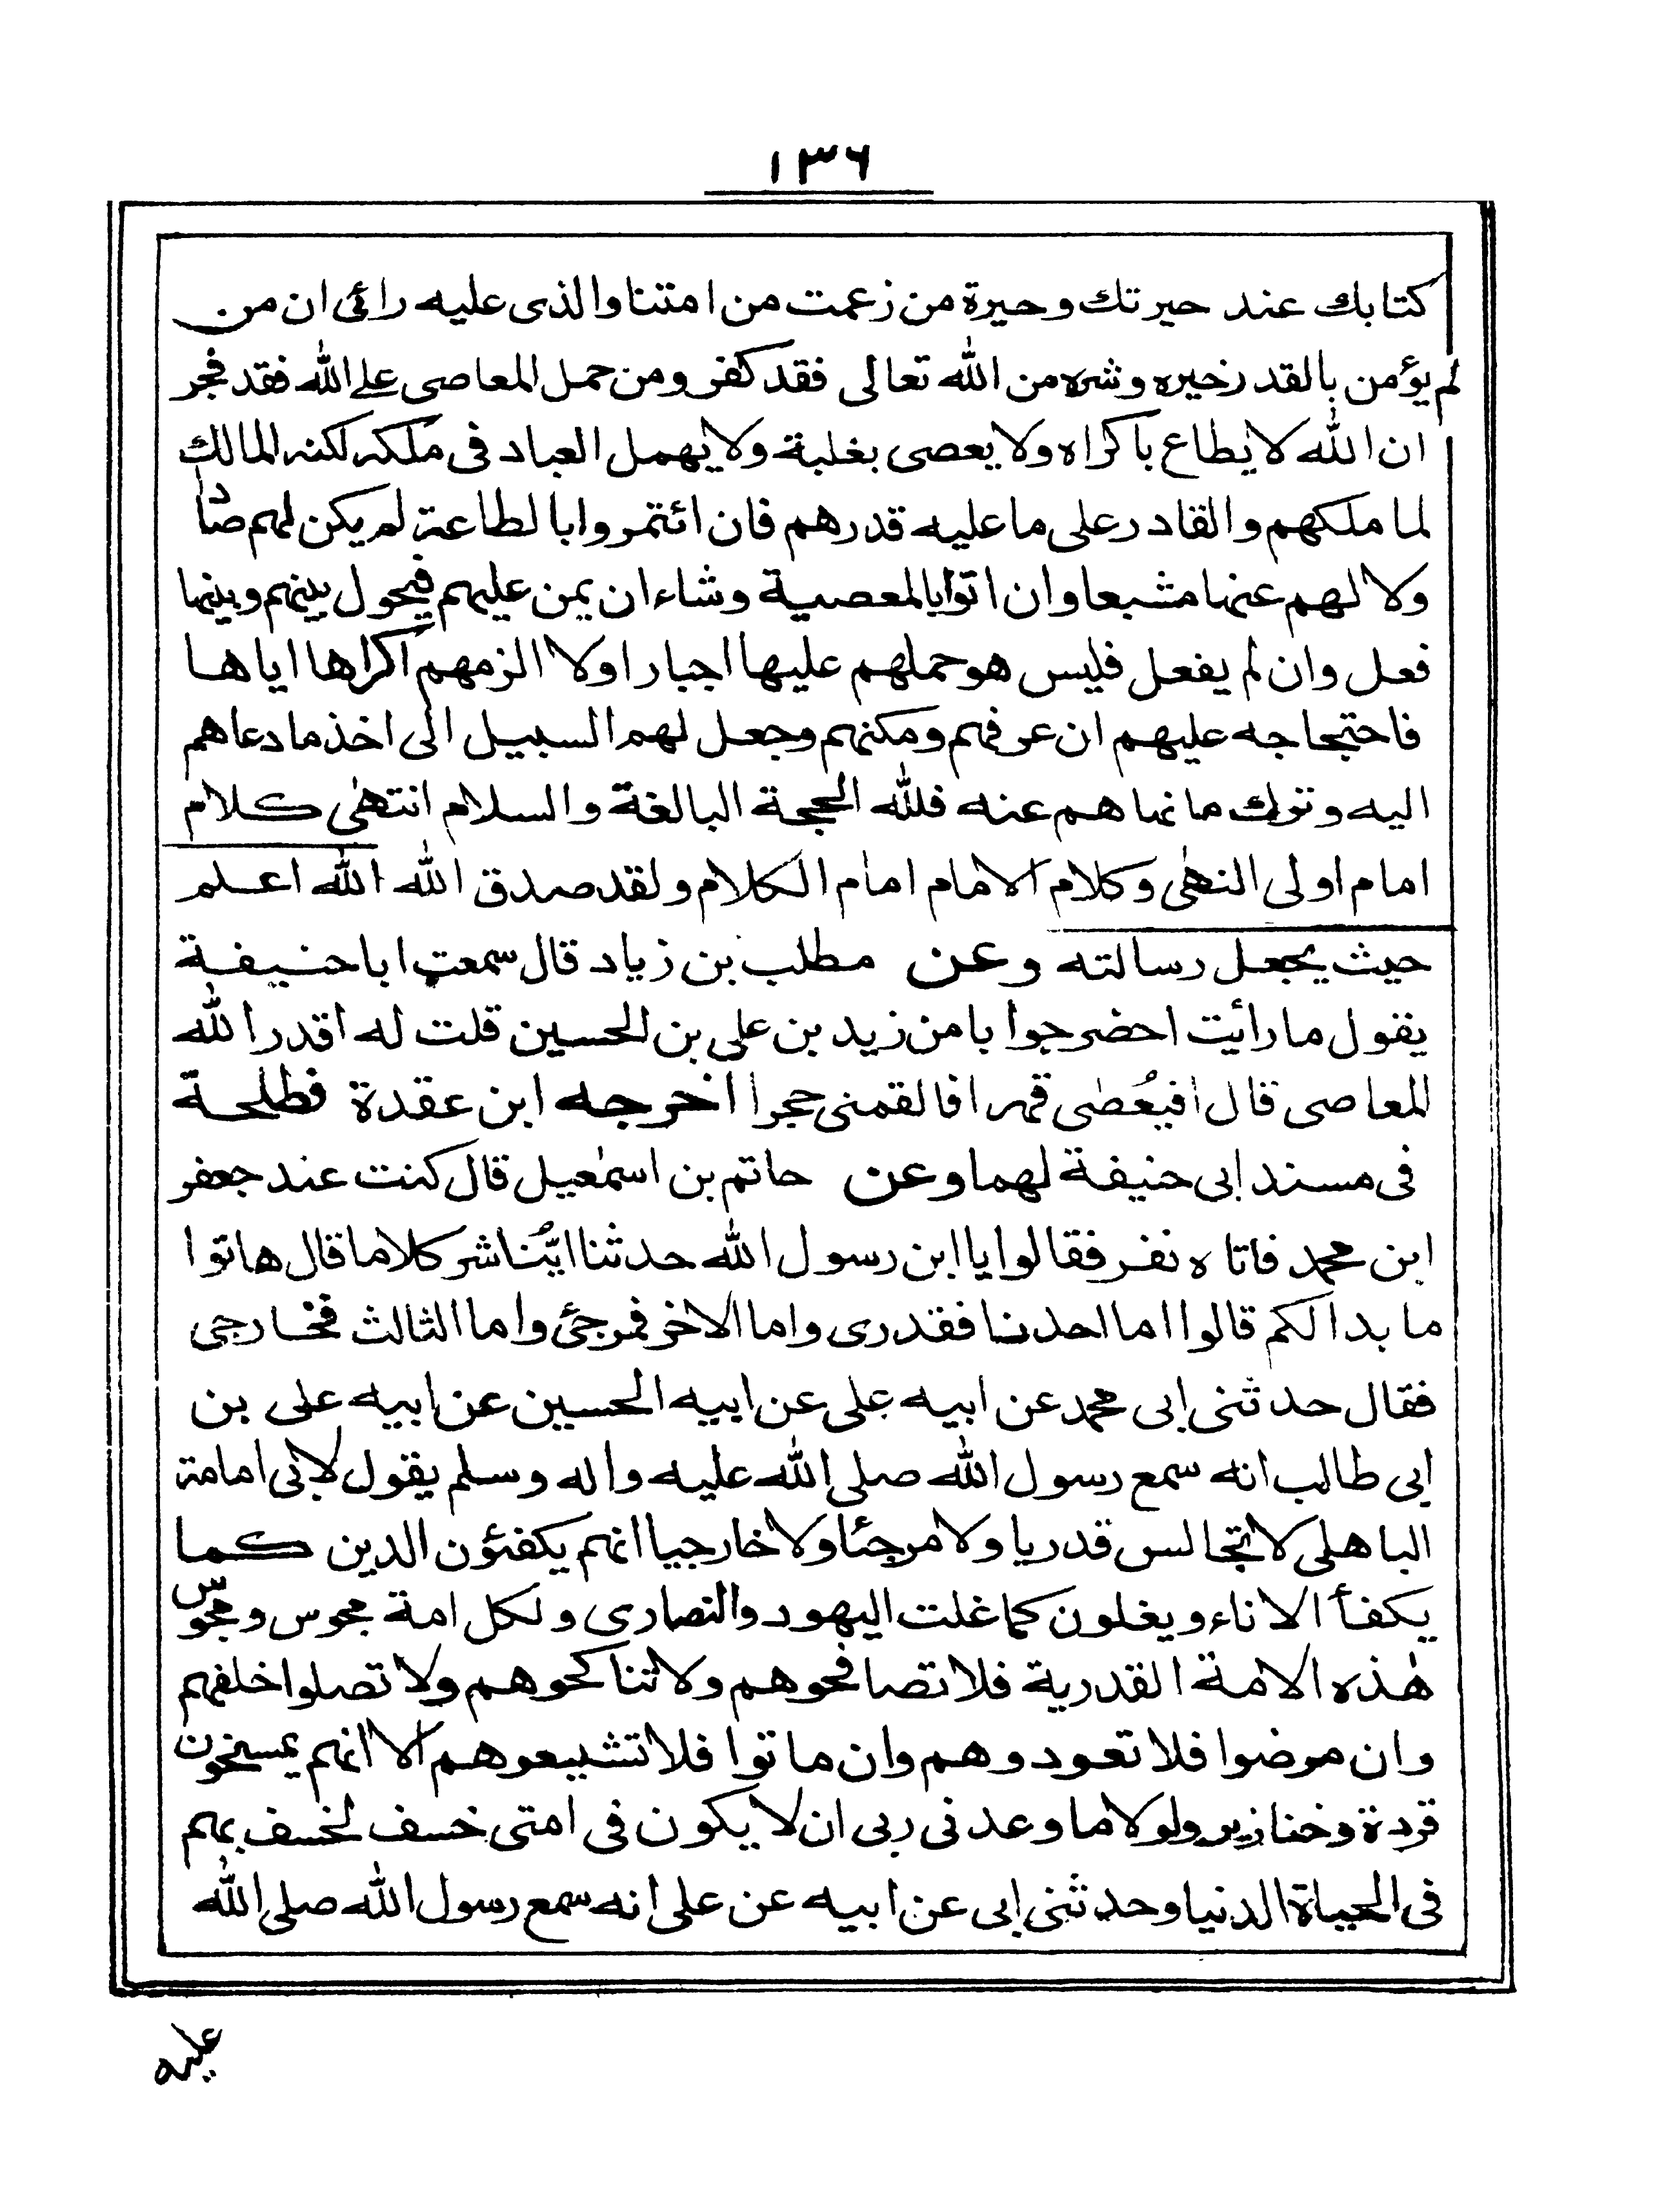 ١٣٦
كتابك عند حيرتك وحيرة من زعمت من امتنا والذى عليه رائى ان من
لم يؤمن بالقدر خيره وشره من الله تعالى فقد كفر ومن حمل المعاصى على الله فقد فجر
ان الله لا يطاع باكراه ولا يعصى بغلبة ولا يهمل العباد فى ملكه لكنه المالك
لما ملكهم والقادر على ما عليه قدرهم فان ائتمروا بالطاعة لم يكن لهم صادا
ولا لهم عنها مشبعا وان اتوا بالمعصية وشاء ان يمن عليهم فيحول بينهم وبينها
فعل وان لم يفعل فليس هو حملهم عليها اجبارا ولا الزمهم اكراها اياها
فاحتجاجه عليهم ان عرفهم ومكنهم وجعل لهم السبيل الى اخذ ما دعاهم
اليه وترك ما نهاهم عنه فلله الحجة البالغة والسلام انتهى كلام
امام اولى النهى وكلام الامام امام الكلام ولقد صدق الله الله اعلم
حيث يجعل رسالته وعن مطلب بن زياد قال سمعت ابا حنيفة
يقول ما رأيت احضر جوابا من زيد بن على بن الحسين قلت له اقدر الله
المعاصى قال افيعصى قهرا فالقمنى حجرا اخرجه ابن عقدة فطلحة
فى مسند ابى حنيفة لهما وعن حاتم بن اسمعيل قال كنت عند جعفر
ابن محمد فاتاه نفر فقالوا يا ابن رسول الله حدثنا ايّنا شر كلاما قال هاتوا
ما بدا لكم قالوا اما احدنا فقدرى واما الاخر فمرجئ واما الثالث فخارجى
فقال حدثنى ابى محمد عن ابيه على عن ابيه الحسين عن ابيه على بن
ابى طالب انه سمع رسول الله صلى الله عليه واله وسلم يقول لابى امامة
الباهلى لا تجالس قدريا ولا مرجئا ولا خارجيا انهم يكفئون الدين كما
يكفأ الاناء ويغلون كما غلت اليهود والنصارى ولكل امة مجوس ومجوس
هذه الامة القدرية فلا تصافحوهم ولا تناكحوهم ولا تصلوا خلفهم
وان مرضوا فلا تعودوهم وان ماتوا فلا تشيعوهم الا انهم يمسخون
قردة وخنازير ولولا ما وعدنى ربى ان لا يكون فى امتى خسف لخسف بهم
فى الحياة الدنيا وحدثنى ابى عن ابيه عن على انه سمع رسول الله صلى الله
عليه